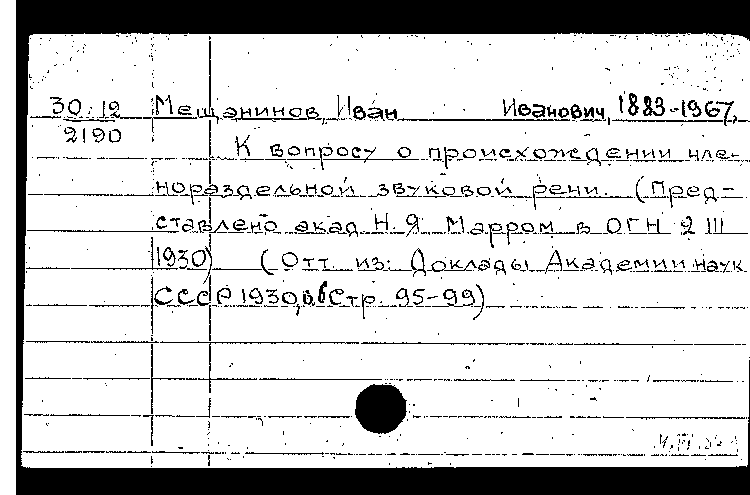 30:12 Мещанинов, Иван Иванович, 1883-1967,
2190
К вопросу о происхождении чле-
нораздельной звуковой речи. (Пред-
ставлено акад Н. Я Марром в ОГН 2 III
1930) (Отт. из: Доклады Академии наук
СССР 1930, в 6 Стр. 95-99)